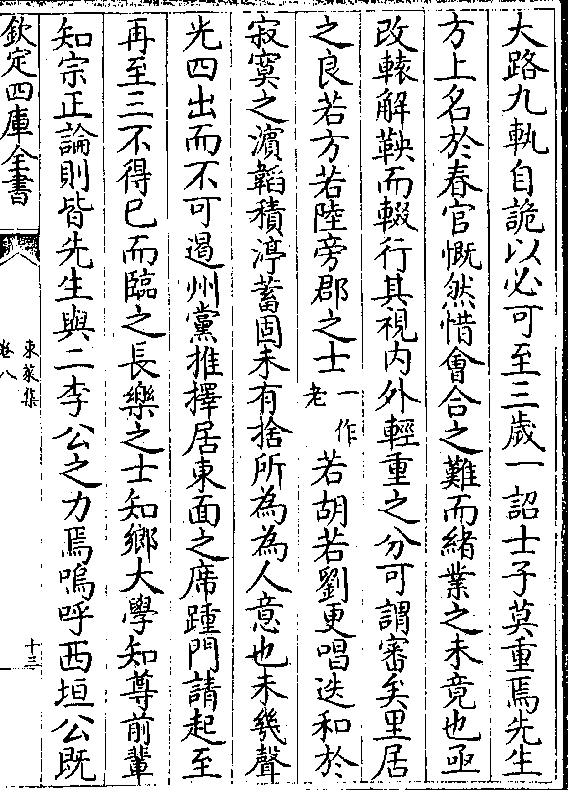 大路九軌自詭以必可至三歲一詔士子莫重焉先生
方上名於春官慨然惜會合之難而緒業之未竟也亟
改轅解鞅而輟行其視内外輕重之分可謂審矣里居
之良若方若陸旁郡之士一作老若胡若劉更唱迭和於
寂寞之濵韜積渟蓄固未有捨所為為人意也未幾聲
光四出而不可遏州黨推擇居東面之席踵門請起至
再至三不得已而臨之長樂之士知鄉大學知尊前輩
知宗正論則皆先生與二李公之力焉嗚呼西垣公既
欽定四庫全書
東萊集
卷八
十三